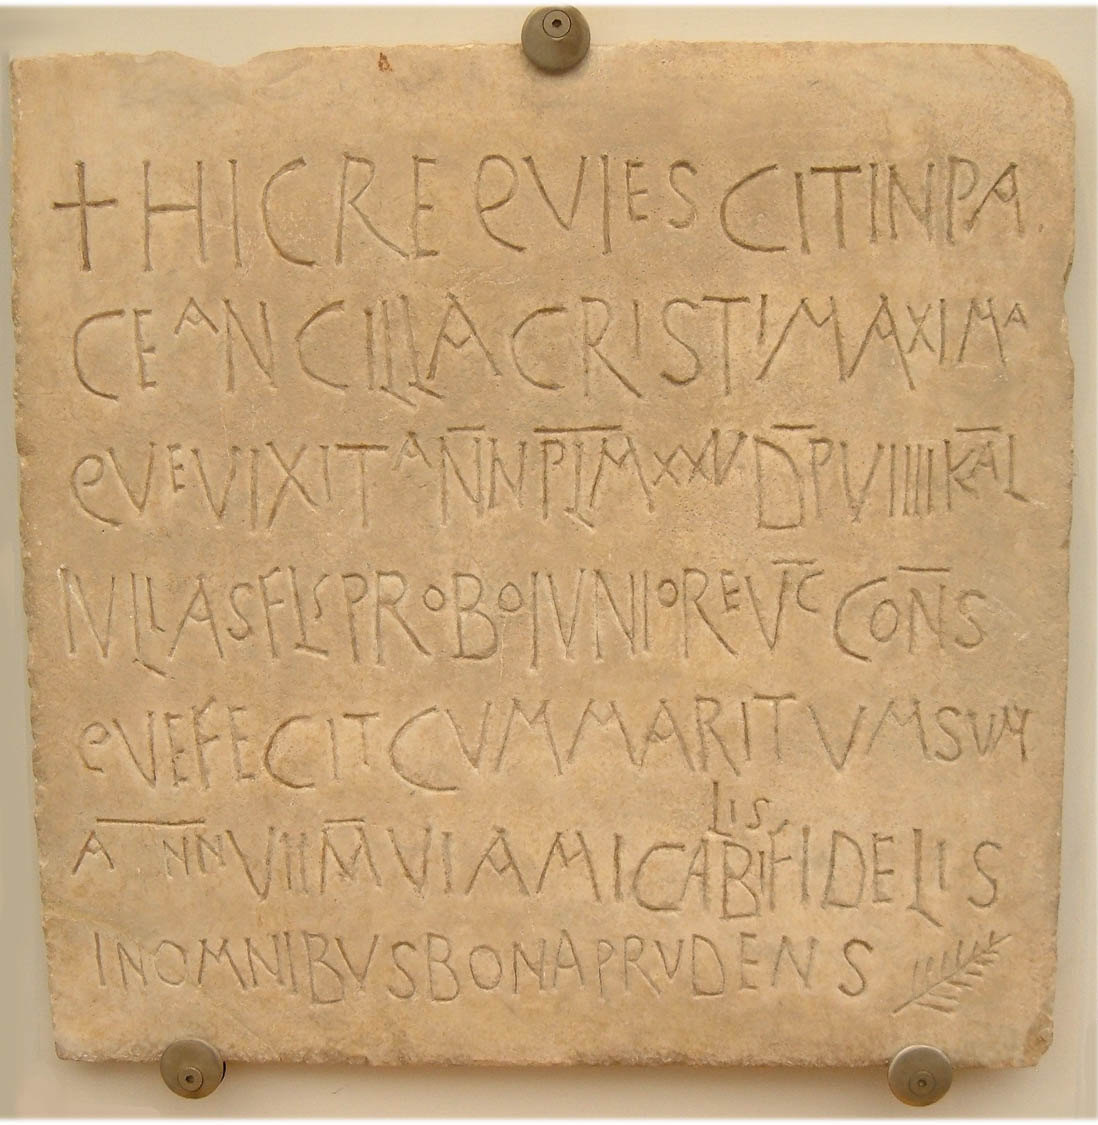 + HIC REQVIESCIT IN PA
CE ANCILLA CRISTI MAXIMA
QVE VIXIT ANN PL M XXV DP VIIII KAL
IVLIAS FL S PROBO IVNIORE VC CONS
QVE FECIT CVM MARITVM SVVM
ANN VII M VI AMICABILIS FIDELIS
IN OMNIBVS BONA PRVDENS